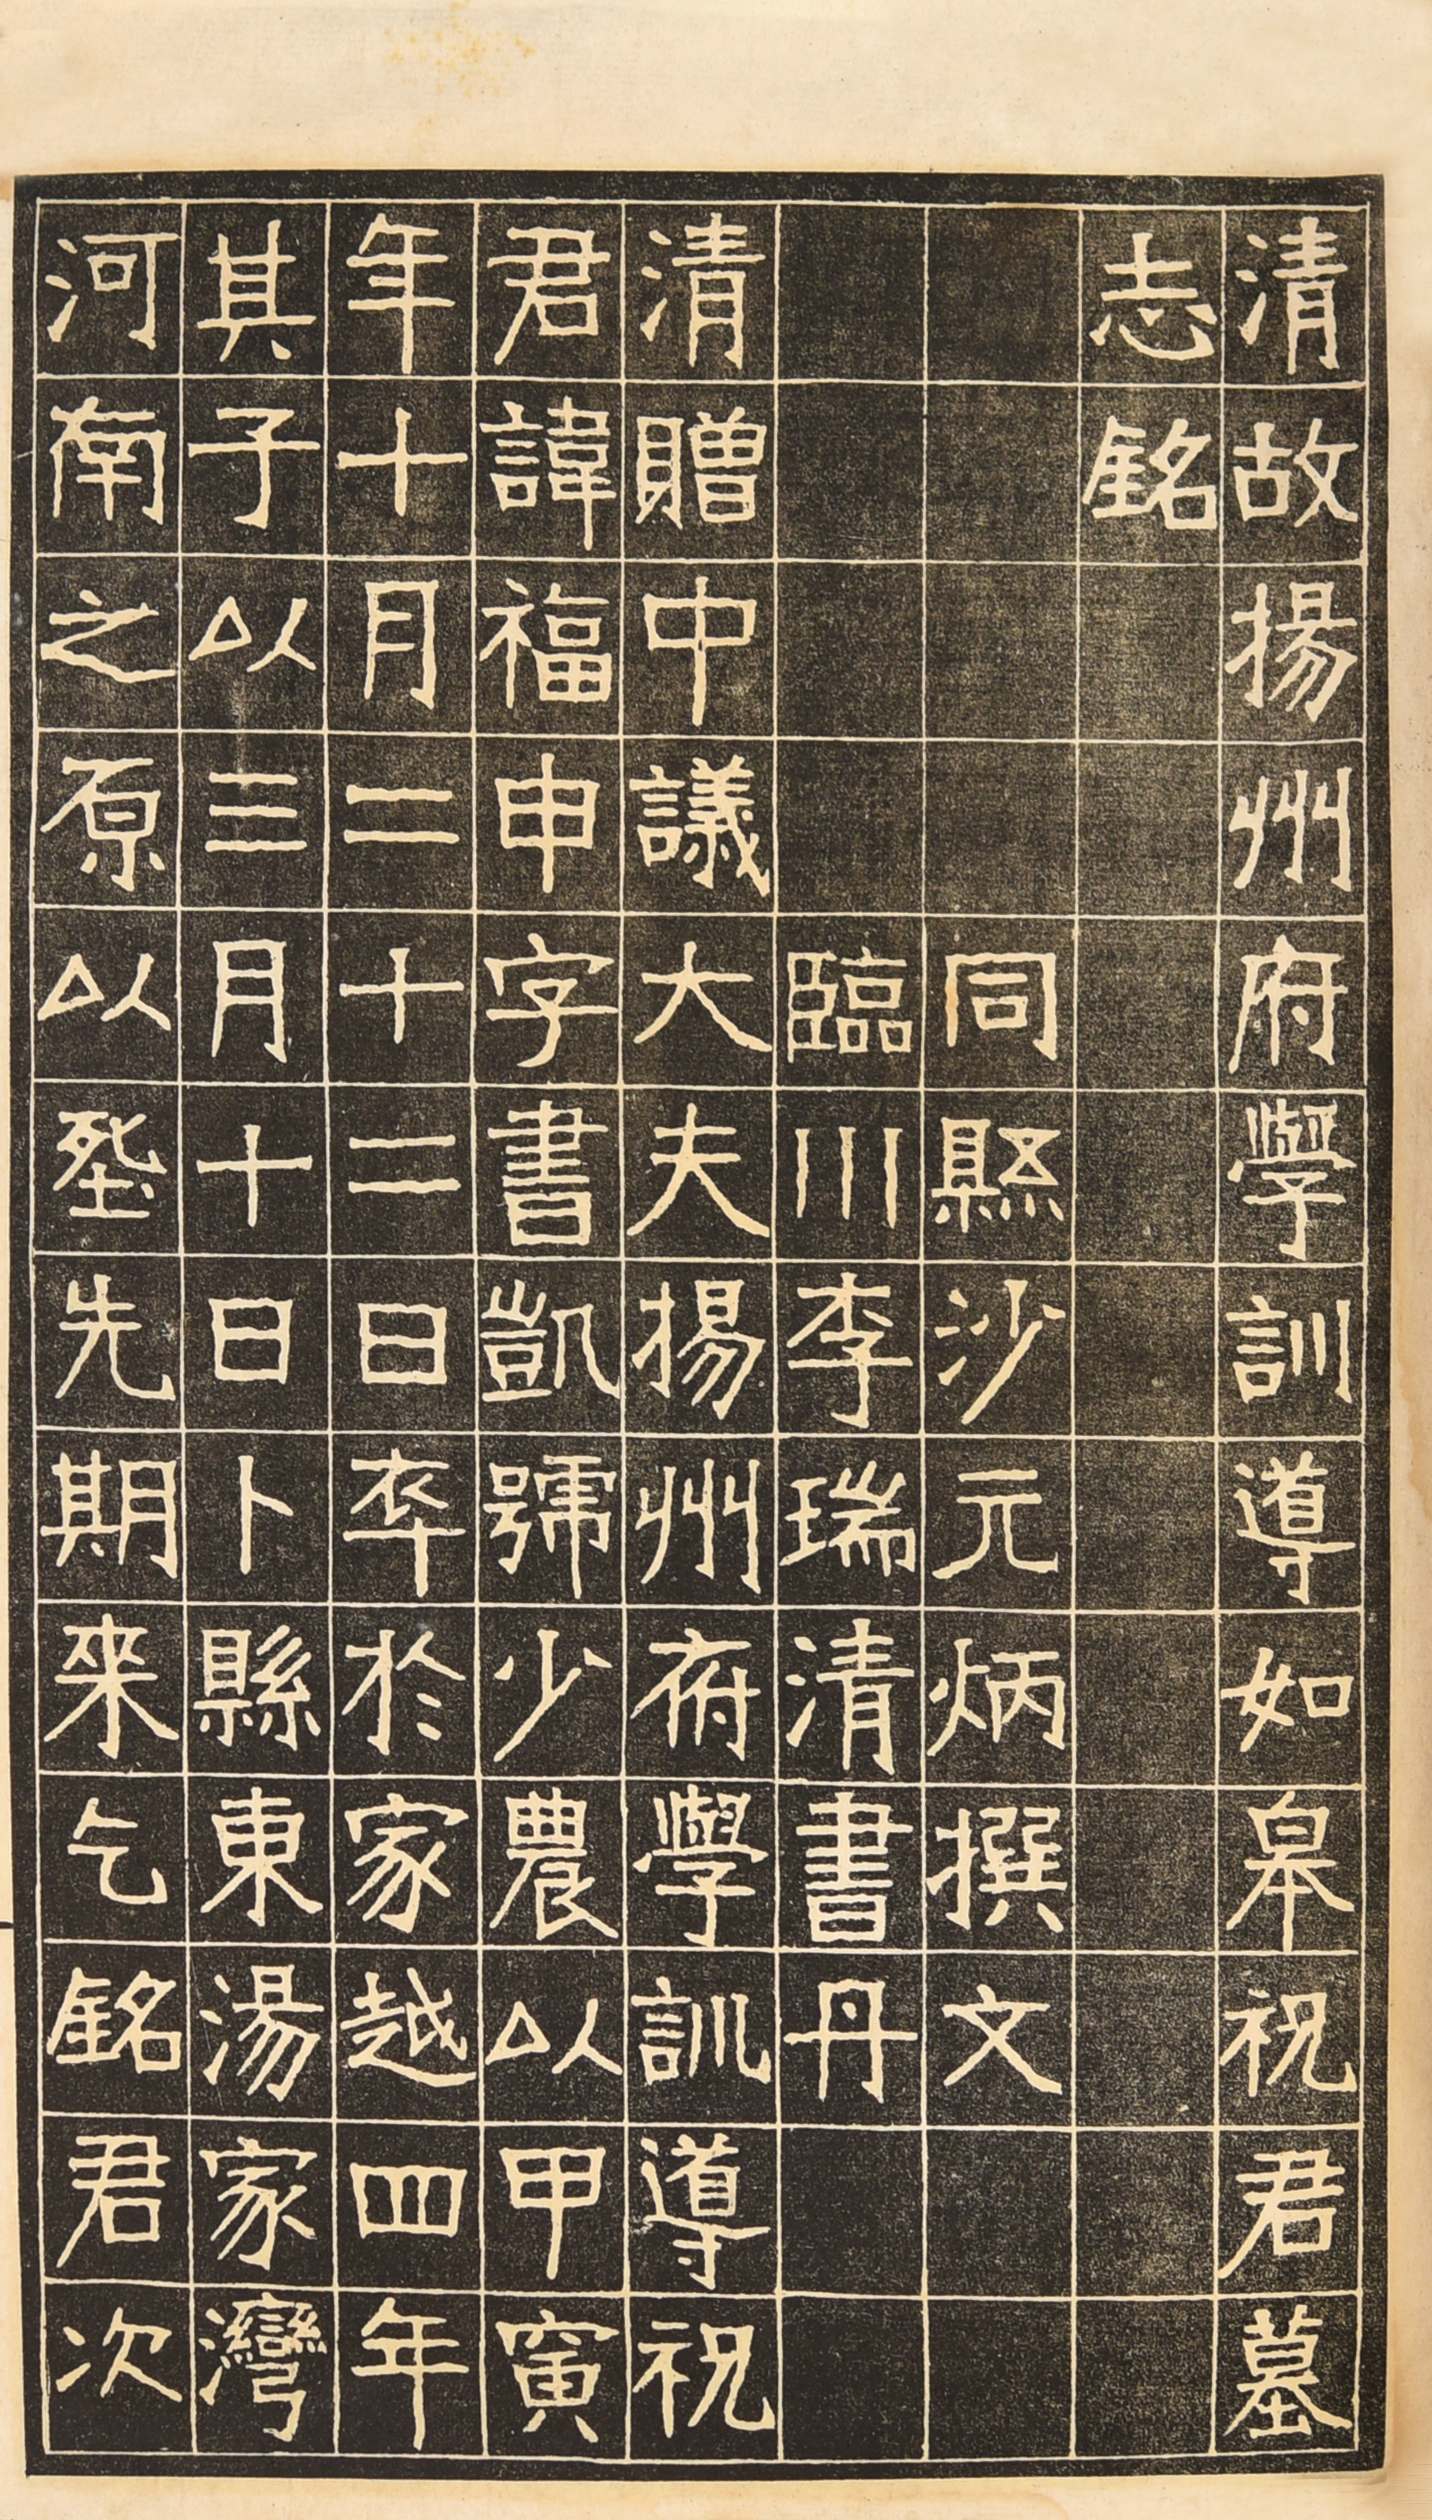 清故揚州府學訓導如皋祝君墓
志銘
同縣沙元炳撰文
臨川李瑞清書丹
清贈中議大夫揚州府學訓導祝
君諱福申字書凱號少農以甲寅
年十月二十二日卒於家越四年
其子以三月十日卜縣東湯家灣
河南之原以塟先期來乞銘君次